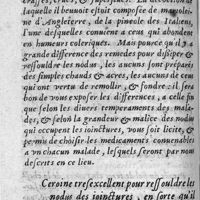 crasses, crues, & superflues. La decoction de
laquelle il beuuoit estoit composee de marjolei-
ne d'Angleterre, de la pineole des Italiens,
l'une desquelles conuient a ceus qui abondent
en humeurs coleriques. Mais pource qu'il y a
grande difference des remedes pour dissiper &
ressouldre les nodus, les aucuns sont preparez
de simples chauds & acres, les aucuns de ceus
qui ont vertu de remollir, & fondre: il sera
bon de vous exposer les differences, a celle fin
que selon les divers temperaments des malades,
& selon la grandeur & malice des nodus
qui occupent les ioinctures, vous soit licite, &
per-mis de choisir les medicaments conuenables
a vn chascun malade, lesquels seront par nom
descrits en ce lieu.
Ceroine tresexcellent pour ressouldre les
nodus des ioinctures, en sorte qu'il